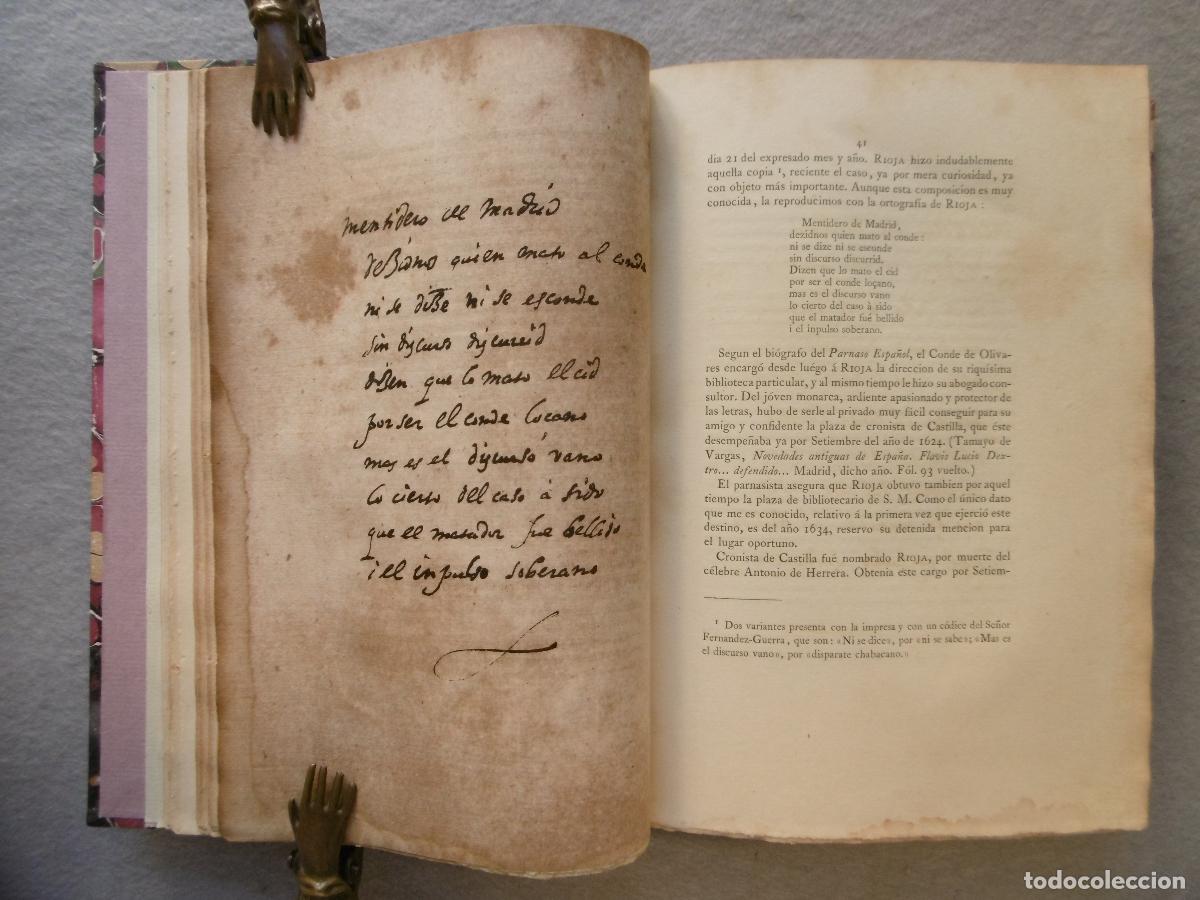 mentidero de madrid
deZidnos quien mato al conde
ni se diZe ni se esconde
sin discurso discurrid
diZen que lo mato el cid
por ser el conde loçano
mas es el discurso vano
lo cierto del caso à sido
que el matador fue bellido
i el inpulso soberano
41
dia 21 del expresado mes y año. RIOJA hizo indudablemente
aquella copia ¹, reciente el caso, ya por mera curiosidad, ya
con objeto más importante. Aunque esta composicion es muy
conocida, la reproducimos con la ortografía de RIOJA :
Mentidero de Madrid,
dezidnos quien mato al conde:
ni se dize ni se esconde
sin discurso discurrid.
Dizen que lo mato el cid
por ser el conde loçano,
mas es el discurso vano
lo cierto del caso à sido
que el matador fué bellido
i el inpulso soberano.
Segun el biógrafo del Parnaso Español, el Conde de Oliva-
res encargó desde luégo á RIOJA la direccion de su riquísima
biblioteca particular, y al mismo tiempo le hizo su abogado con-
sultor. Del jóven monarca, ardiente apasionado y protector de
las letras, hubo de serle al privado muy fácil conseguir para su
amigo y confidente la plaza de cronista de Castilla, que éste
desempeñaba ya por Setiembre del año de 1624. (Tamayo de
Vargas, Novedades antiguas de España. Flavio Lucio Dex-
tro... defendido... Madrid, dicho año. Fól. 93 vuelto.)
El parnasista asegura que RIOJA obtuvo tambien por aquel
tiempo la plaza de bibliotecario de S. M. Como el único dato
que me es conocido, relativo á la primera vez que ejerció este
destino, es del año 1634, reservo su detenida mencion para
el lugar oportuno.
Cronista de Castilla fué nombrado RIOJA, por muerte del
célebre Antonio de Herrera. Obtenia este cargo por Setiem-
¹ Dos variantes presenta con la impresa y con un códice del Señor
Fernandez-Guerra, que son: «Ni se dice», por «ni se sabe»; «Mas es
el discurso vano», por «disparate chabacano.»
todocoleccion